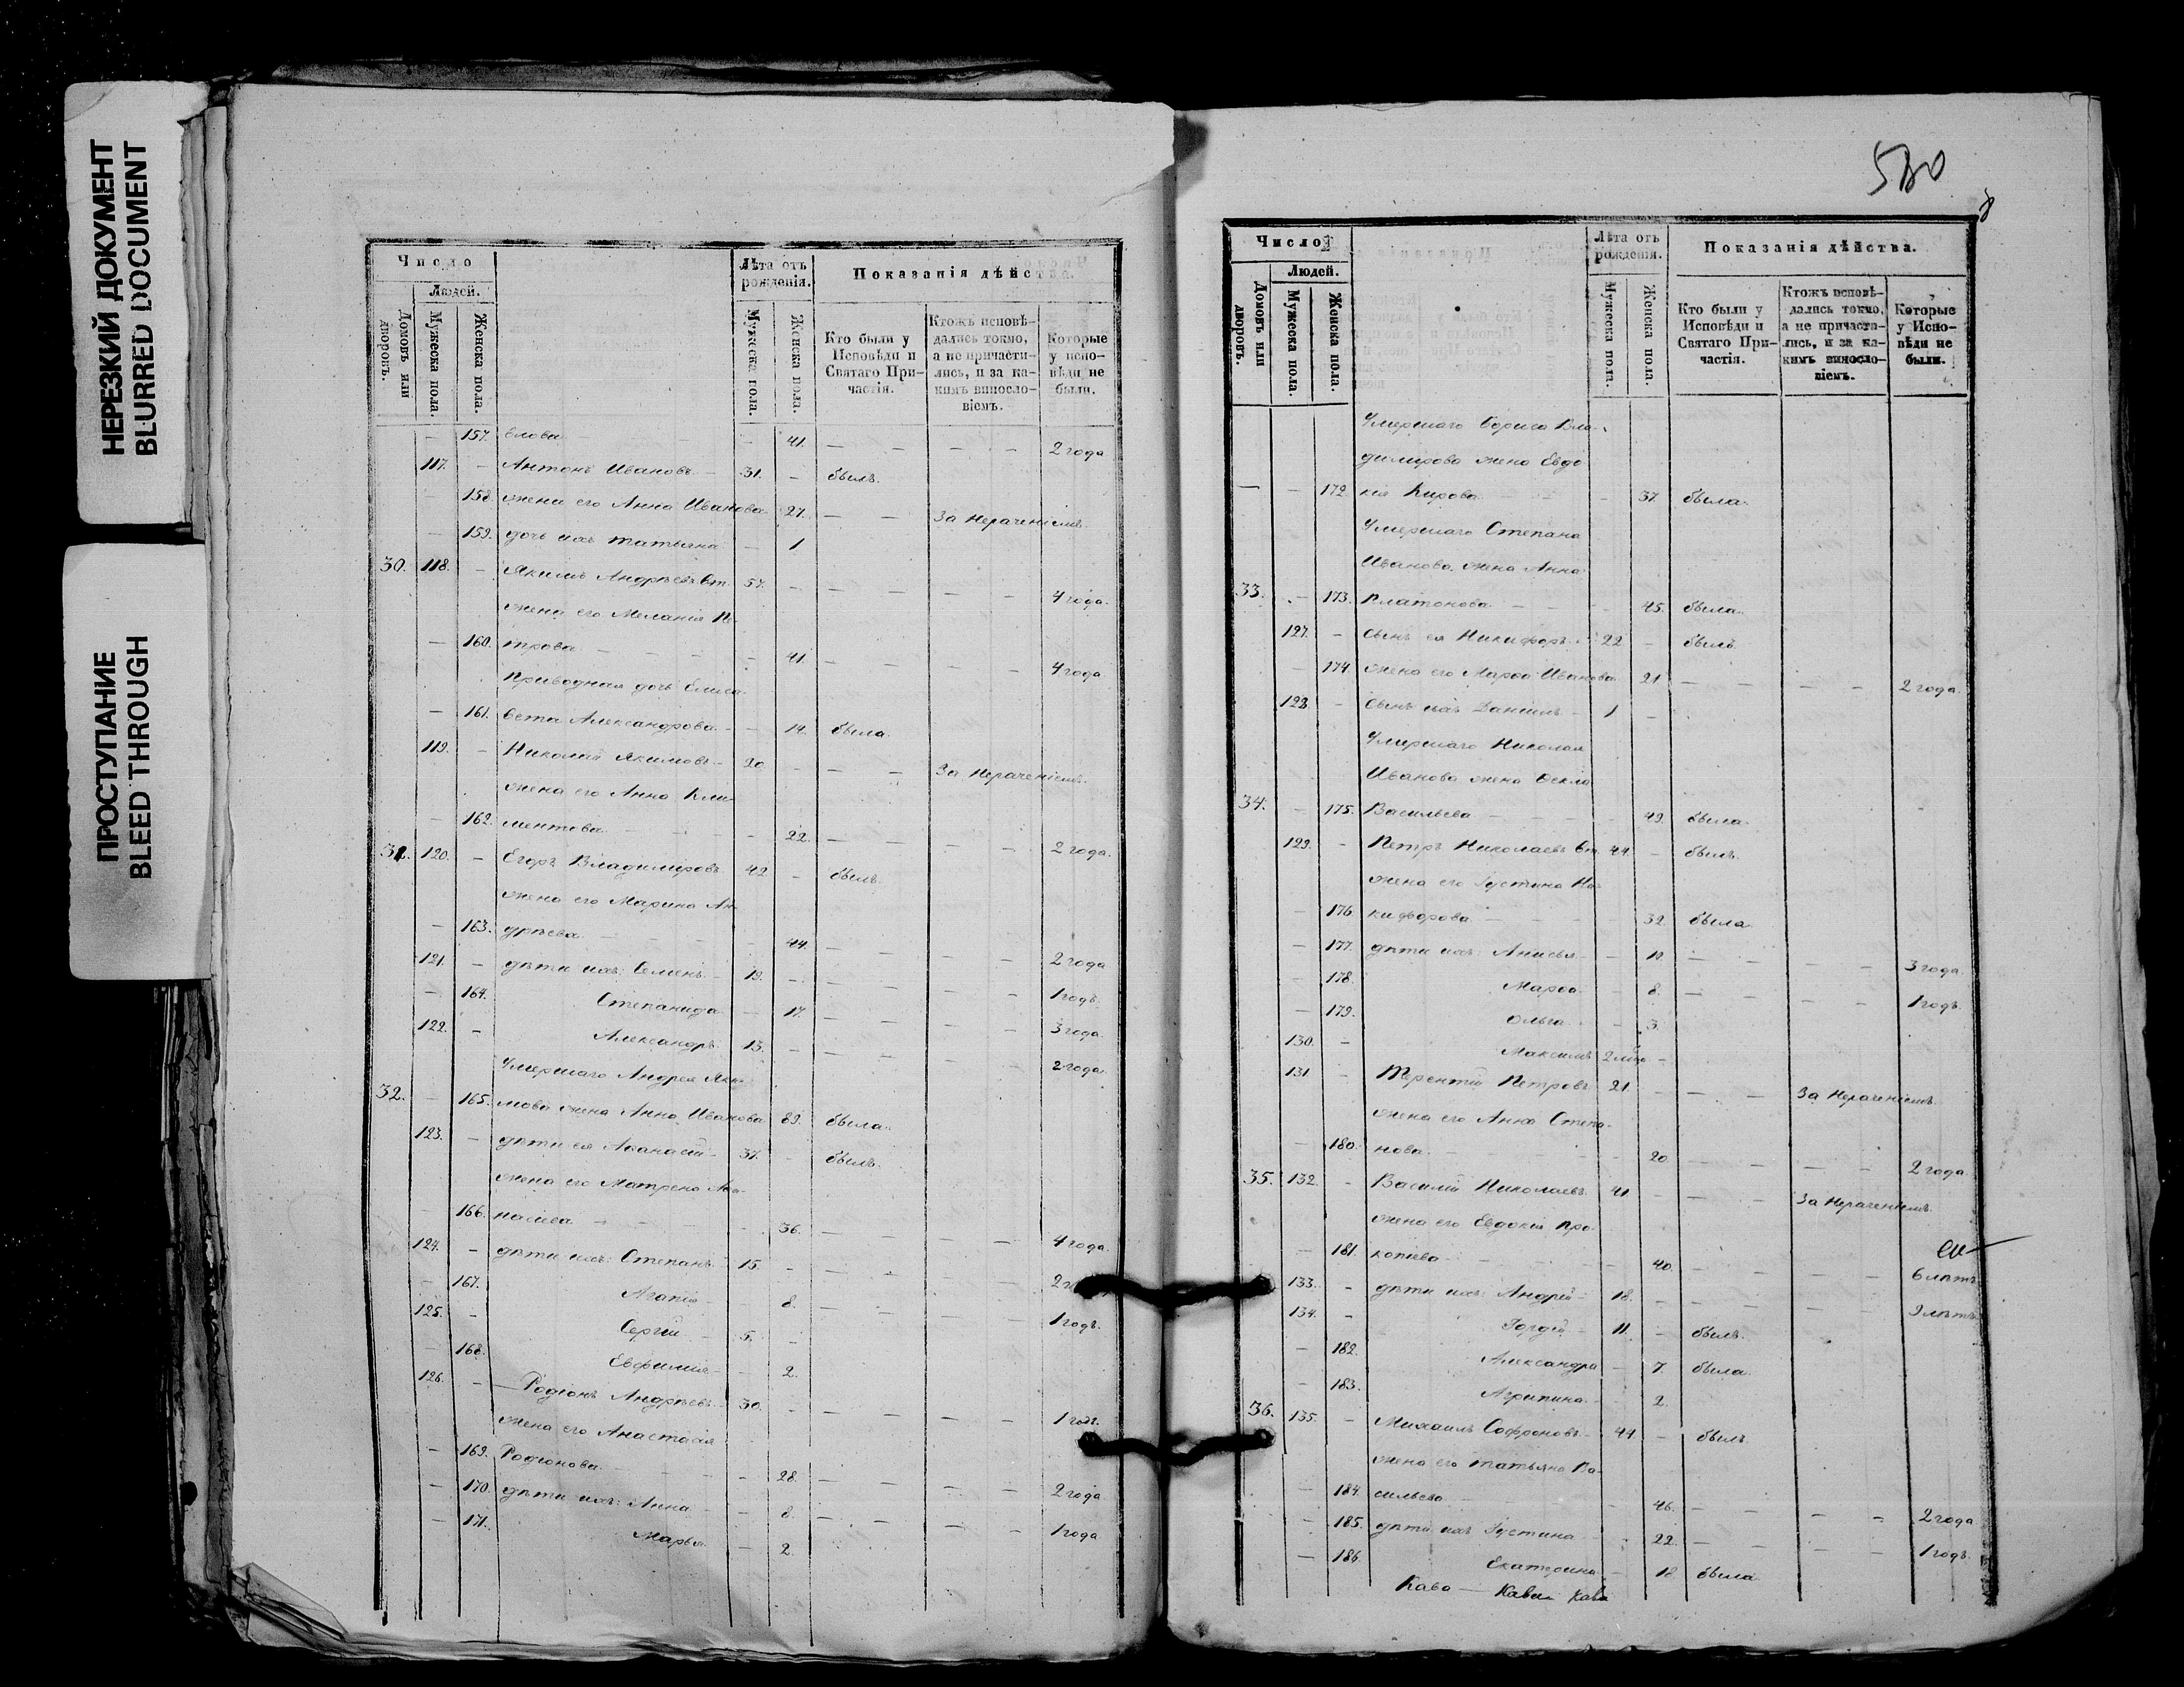 НЕРЕЗКИЙ ДОКУМЕНТ
BLURRED DOCUMENT
ПРОСТУПАНИЕ
BLEED THROUGH
Число
Людей.
Домовъ или дворовъ.
Мужеска пола.
Женска пола.
Лѣта отъ рожденія.
Мужеска пола.
Женска пола.
Показанія дѣйства.
Кто были у Исповѣди и Святаго Причастія.
Ктожъ исповѣдались токмо, а не причастились, и за какимъ винословіемъ.
Которые у исповѣди не были.
— 157. влова — 41. — — — — 2 года
117. — Антонъ Ивановъ — 31. — былъ.
— 158. жена его Анна Иванова 27. — — За нераченіемъ.
— 159. дочь ихъ Татьяна — 1
30. 118. — Якимъ Андреевъ 57. — — — — — 4 года.
жена его Меланія Пе-
— 160. трова — — — — 41. — — — — 4 года
приводная дочь Елиса-
— 161. вета Александрова — — 14. была.
119. — Николай Якимовъ — 20. — — — За нераченіемъ.
жена его Анна Кли-
— 162. ментова — — — — 22. — — — — 2 года.
31. 120. — Егоръ Владиміровъ 42. — былъ.
жена его Марина Ан-
— 163. дреева — — — — 44. — — — — 2 года
121. — дѣти ихъ: Семенъ — 19. — — — — — 1 годъ.
— 164. Степанида — 17. — — — — 3 года
122. — Александръ 13. — — — — — 2 года.
Умершаго Андрея Яки-
32. — 165. мова жена Анна Иванова 89. была.
123. — дѣти ея Аѳанасій — 37. — былъ.
жена его Матрена Аѳа-
166. насіева — — — 36. — — — — 4 года.
124. — дѣти ихъ: Степанъ 15. — — — — —
— 167. Агапія — — 8. — — — — 1 годъ.
125. — Сергій — 5. —
— 168. Евфимія — — 2.
126. — Родіонъ Андреевъ 30. — — — — — 1 годъ.
жена его Анастасія
— 169. Родіонова — — — — 28. — — — — 2 года
— 170. дѣти ихъ: Анна — — 8. — — — — 1 года
— 171. Марья — 2.
580
Число
Людей.
Домовъ или дворовъ.
Мужеска пола.
Женска пола.
Лѣта отъ рожденія.
Мужеска пола.
Женска пола.
Показанія дѣйства.
Кто были у Исповѣди и Святаго Причастія.
Ктожъ исповѣдались токмо, а не причастились, и за какимъ винословіемъ.
Которые у Исповѣди не были.
Умершаго Бориса Вла-
димірова жена Евдо
— — 172. кія Кирова — 37. была.
Умершаго Степана
Иванова жена Анна
33. — 173. Платонова — — — — 45. была.
127. — сынъ ея Никифоръ 22 — былъ.
— 174 жена его Марѳа Иванова 21 — — — — 2 года.
128. — сынъ ихъ Даніилъ — 1 —
Умершаго Николая
Иванова жена Ѳекла
34. — 175. Васильева — — — — 49. была.
129. — Петръ Николаевъ 44. — былъ.
жена его Іустина Ни-
— 176. кифорова — — — — 32. была
— 177. дѣти ихъ: Анисья — — — — — — 3 года
— 178. Марѳа — 8. — — — — 1 годъ.
— 179. Ольга — — 3.
130. — Максимъ —
131 — Терентій Петровъ 21. — — — За нераченіемъ.
жена его Анна Степа-
— 180. нова — — — 20 — — — — 2 года
35. 132. — Василій Николаевъ 41. — — — За нераченіемъ.
жена его Евдокія Про-
— 181. копіева — — — — 40. — — — — 6 лѣтъ
133. — дѣти ихъ: Андрей — 18. — — — — — 9 лѣтъ
134. — Гордей — 11. — былъ.
— 182. Александра — 7. была.
— 183. Агрипина — — 2.
36. 135. — Михаилъ Софроновъ — 44. — былъ.
жена его Татьяна Ва-
— 184. сильева — — — — 46. — — — — 2 года
— 185. дѣти ихъ Іустина — 22. — — — — 1 годъ.
— 186 Екатерина — 18 была